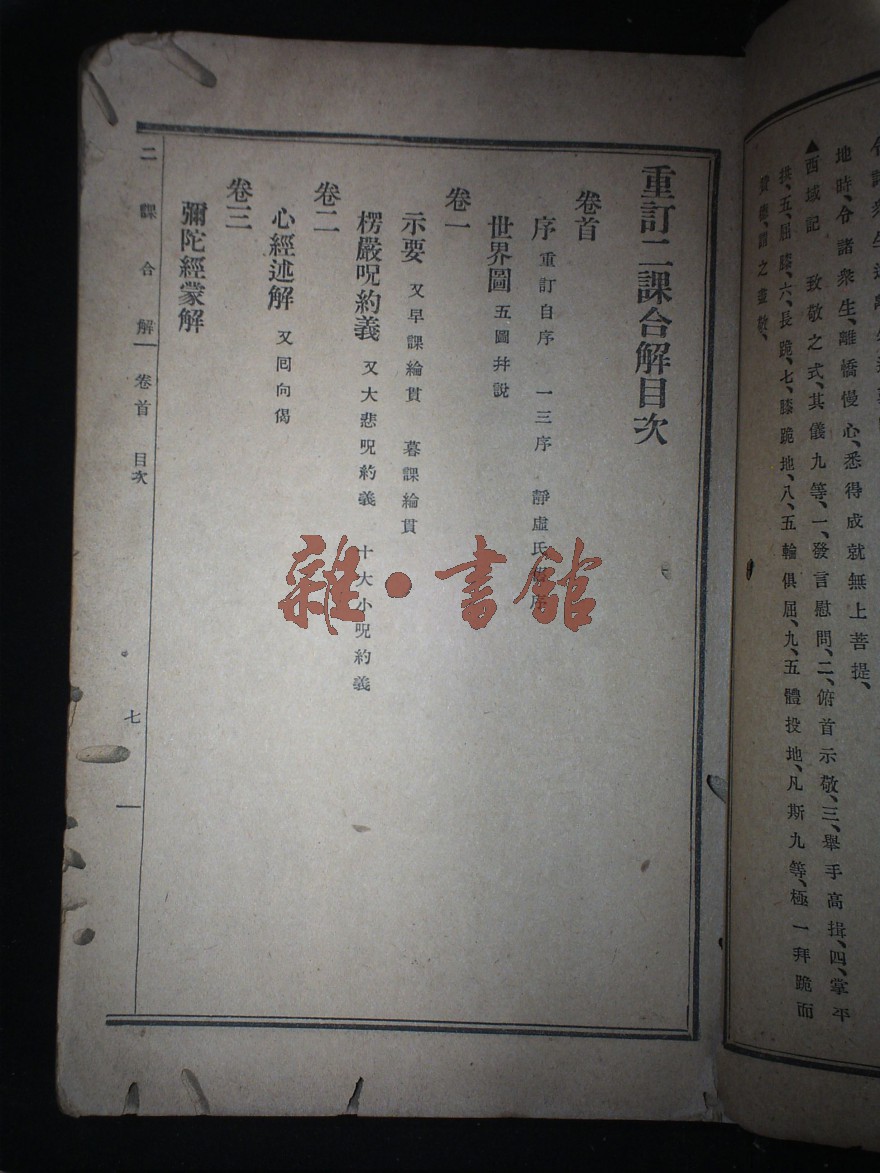 地時、令諸衆生、離憍慢心、悉得成就無上菩提、
▲西域記　致敬之式、其儀九等、一、發言慰問、二、俯首示敬、三、舉手高揖、四、掌平
拱、五、屈膝、六、長跪、七、膝跪地、八、五輪俱屈、九、五體投地、凡斯九等、極一拜跪而
謂之盡敬、
重訂二課合解目次
卷首
序 重訂自序 一三序 靜虛氏 序
世界圖 五圖幷說
卷一
示要 又早課綸貫 暮課綸貫
楞嚴呪約義 又大悲呪約義 十大小呪約義
卷二
心經述解 又囘向偈
卷三
彌陀經蒙解
二課合解 卷首 目次
七
雜·書館